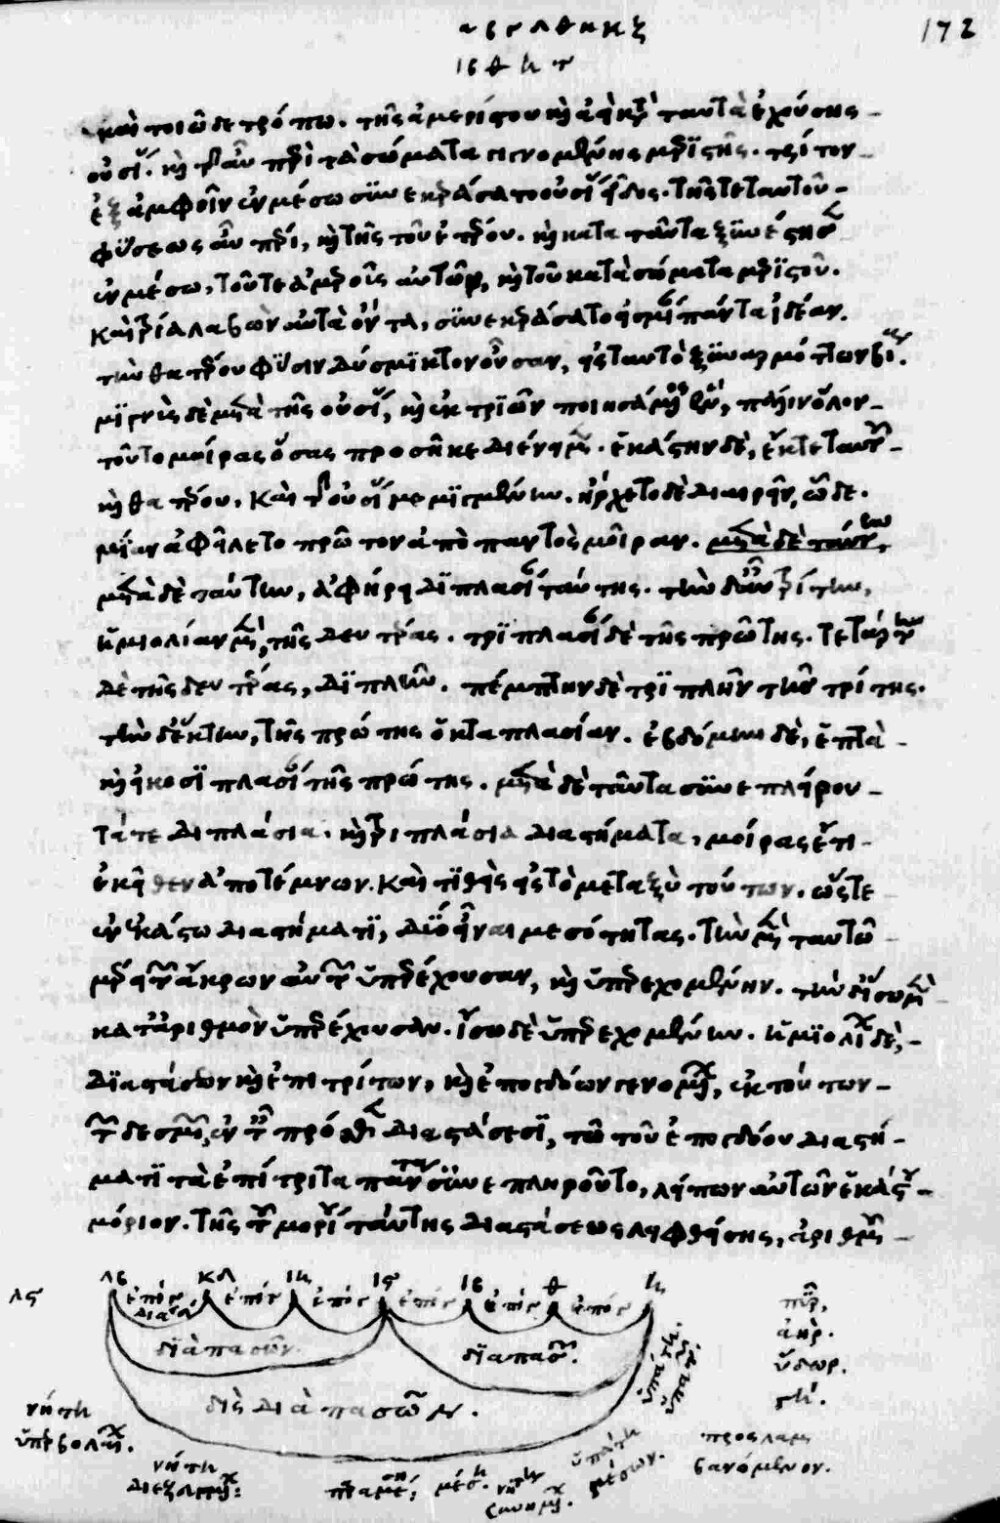 α β γ δ θ η κζ
172
ιβ θ η ϛ
καὶ τοιῶδε τρόπω. τῆς ἀμερίστου καὶ ἀεὶ κατὰ ταυτὰ ἐχούσης
οὐσίας. καὶ τῆς αὖ περὶ τὰ σώματα γινομένης μεριστῆς. τρίτον
ἐξ ἀμφοῖν ἐν μέσω συνεκεράσατο οὐσίας εἶδος. τῆς τε ταυτοῦ
φύσεως αὖ πέρι, καὶ τῆς τοῦ ἑτέρου. καὶ κατὰ ταῦτα ξυνέστησεν
ἐν μέσω, τοῦ τε ἀμεροῦς αὐτῶν, καὶ τοῦ κατὰ σώματα μεριστοῦ.
καὶ τρία λαβὼν αὐτὰ ὄντα, συνεκεράσατο εἰς μίαν πάντα ἰδέαν.
τὴν θατέρου φύσιν δύσμικτον οὖσαν, εἰς ταυτὸ ξυναρμόττων βίᾳ.
μιγνὺς δὲ μετὰ τῆς οὐσίας, καὶ ἐκ τριῶν ποιησάμενος ἕν, πάλιν ὅλον
τοῦτο μοίρας ὅσας προσῆκε διένειμεν. ἑκάστην δὲ, ἔκ τε ταυτοῦ
καὶ θατέρου. καὶ τῆς οὐσίας μεμιγμένην. ἤρχετο δὲ διαιρεῖν, ὧδε.
μίαν ἀφεῖλετο πρῶτον ἀπὸ παντὸς μοῖραν. μετὰ δὲ ταύτην,
μετὰ δὲ ταύτην, ἀφήρει διπλασίαν ταύτης. τὴν δ' αὖ τρίτην,
ἡμιολίαν μὲν τῆς δευτέρας. τριπλασίαν δὲ τῆς πρώτης. τετάρτην
δὲ τῆς δευτέρας, διπλῆν. πέμπτην δὲ τριπλῆν τῆς τρίτης.
τὴν δ' ἕκτην, τῆς πρώτης ὀκταπλασίαν. ἑβδόμην δὲ, ἑπτὰ
καὶ εἰκοσιπλασίαν τῆς πρώτης. μετὰ δὲ ταῦτα συνεπλήρου
τά τε διπλάσια. καὶ τριπλάσια διαστήματα, μοίρας ἔτι
ἐκεῖθεν ἀποτέμνων. καὶ τιθεὶς εἰς τὸ μεταξὺ τούτων. ὥστε
ἐν ἑκάστω διαστήματι, δύο εἶναι μεσότητας. τὴν μὲν ταυτῶ
μέρει τῶν ἄκρων αὐτῶν ὑπερέχουσαν, καὶ ὑπερεχομένην. τὴν δὲ ἴσω μὲν
κατ' ἀριθμὸν ὑπερέχουσαν. ἴσω δὲ ὑπερεχομένην. ἡμιολίων δὲ,
διαστάσεων καὶ ἐπιτρίτων, καὶ ἐπογδόων γενομένων, ἐκ τούτων
τῶν δεσμῶν, ἐν ταῖς πρόσθεν διαστάσεσι, τῶ τοῦ ἐπογδόου διαστή
ματι τὰ ἐπίτριτα πάντα συνεπληροῦτο, λείπων αὐτῶν ἑκάστου
μόριον. τῆς τοῦ μορίου ταύτης διαστάσεως λειφθείσης, ἀριθμοῦ
λϛ
λβ κδ ιη ιϛ ιβ θ η
ἐπίτρ ἐπίτρ ἐπόγ ἐπίτρ ἐπίτρ ἐπόγ
διαπασῶν
διαπασῶν.
δὶς διὰ πασῶν.
πῦρ,
ἀὴρ.
ὕδωρ.
γῆ.
ὑπάτη.
ὑπατῶν.
νήτη
ὑπερβολαίων.
νήτη
διεζευγμένων:
παραμέση,
μέση.
νήτη
συνημμένων.
ὑπάτη
μέσων.
προσλαμ
βανόμενον.